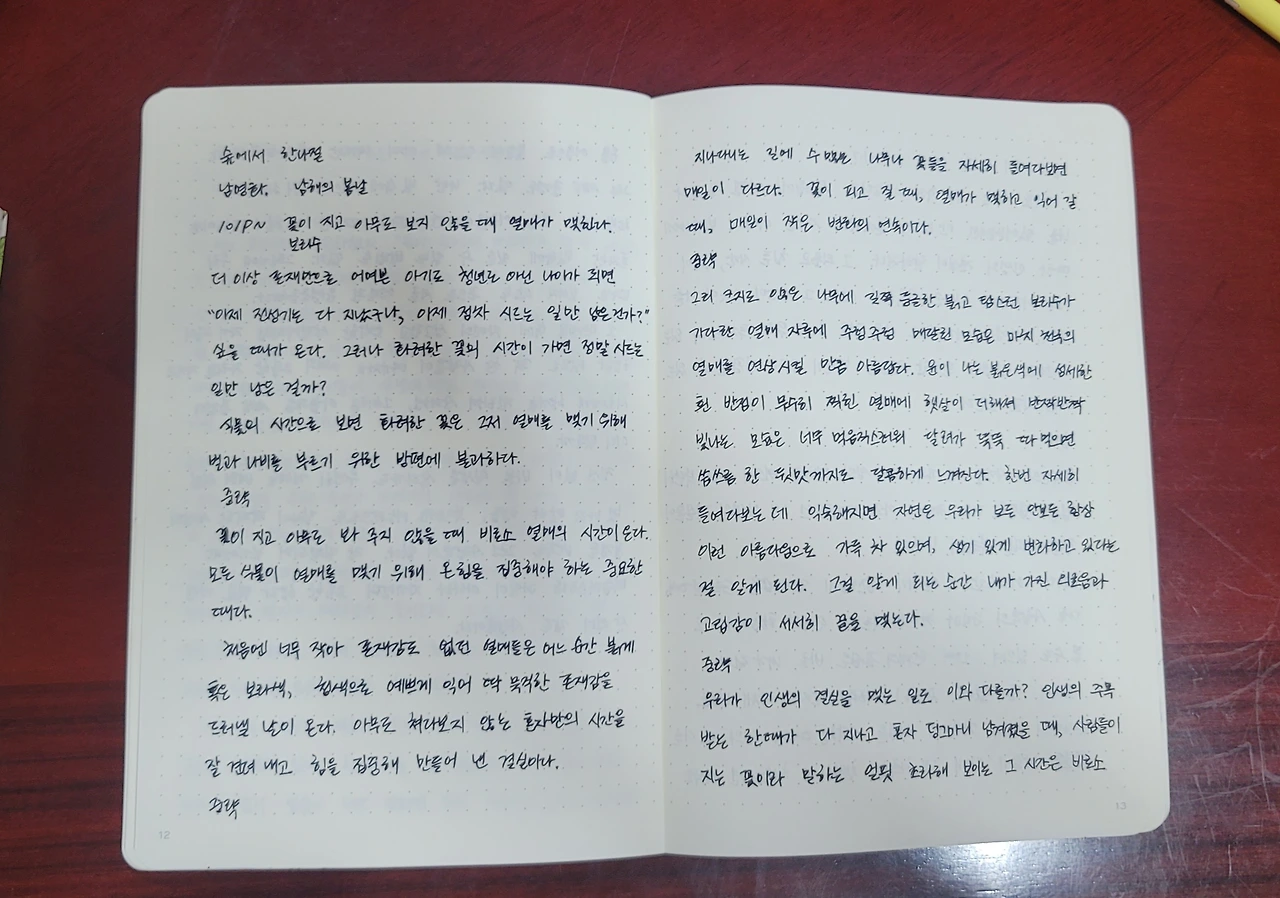 숲에서 한나절
남영화, 남해의 봄날
101P~ 꽃이 지고 아무도 보지 않을 때 열매가 맺힌다.
보리수
더 이상 존재만으로 어여쁜 아기도 청년도 아닌 나이가 되면
"이제 전성기는 다 지났구나, 이제 점차 시드는 일만 남은건가?"
싶을 때가 온다. 그러나 화려한 꽃의 시간이 가면 정말 시드는
일만 남는 걸까?
식물의 시간으로 보면 화려한 꽃은 그저 열매를 맺기 위해
벌과 나비를 부르기 위한 방편에 불과하다.
중략
꽃이 지고 아무도 봐 주지 않을 때 비로소 열매의 시간이 온다.
모든 식물이 열매를 맺기 위해 온힘을 집중해야 하는 중요한
때다.
처음엔 너무 작아 존재감도 없던 열매들은 어느 순간 붉게
혹은 보라색, 흰색으로 예쁘게 익어 딱 묵직한 존재감을
드러낼 날이 온다. 아무도 쳐다보지 않는 혼자만의 시간을
잘 견뎌 내고 힘을 집중해 만들어 낸 결실이다.
중략
12
지나다니는 길에 수많은 나무나 꽃들을 자세히 들여다보면
매일이 다르다. 꽃이 피고 질 때, 열매가 맺히고 익어 갈
때, 매일이 작은 변화의 연속이다.
중략
그리 크지도 않은 나무에 길쭉 둥글한 붉고 탐스런 보리수가
기다란 열매 자루에 주렁주렁 매달린 모습은 마치 천국의
열매를 연상시킬 만큼 아름답다. 윤이 나는 붉은색에 섬세한
흰 반점이 무수히 찍힌 열매에 햇살이 더해져 반짝반짝
빛나는 모습은 너무 먹음직스러워 달려가 뚝뚝 따 먹으면
씁쓰름 한 뒷맛까지도 달콤하게 느껴진다. 한번 자세히
들여다보는 데 익숙해지면 자연은 우리가 보든 안보든 항상
이런 아름다움으로 가득 차 있으며, 생기 있게 변화하고 있다는
걸 알게 된다. 그걸 알게 되는 순간 내가 가진 외로움과
고립감이 서서히 끝을 맺는다.
중략
우리가 인생의 결실을 맺는 일도 이와 다를까? 인생의 주목
받는 한때가 다 지나고 혼자 덩그마니 남겨졌을 때, 사람들이
지는 꽃이라 말하는 얼핏 초라해 보이는 그 시간은 비로소
13